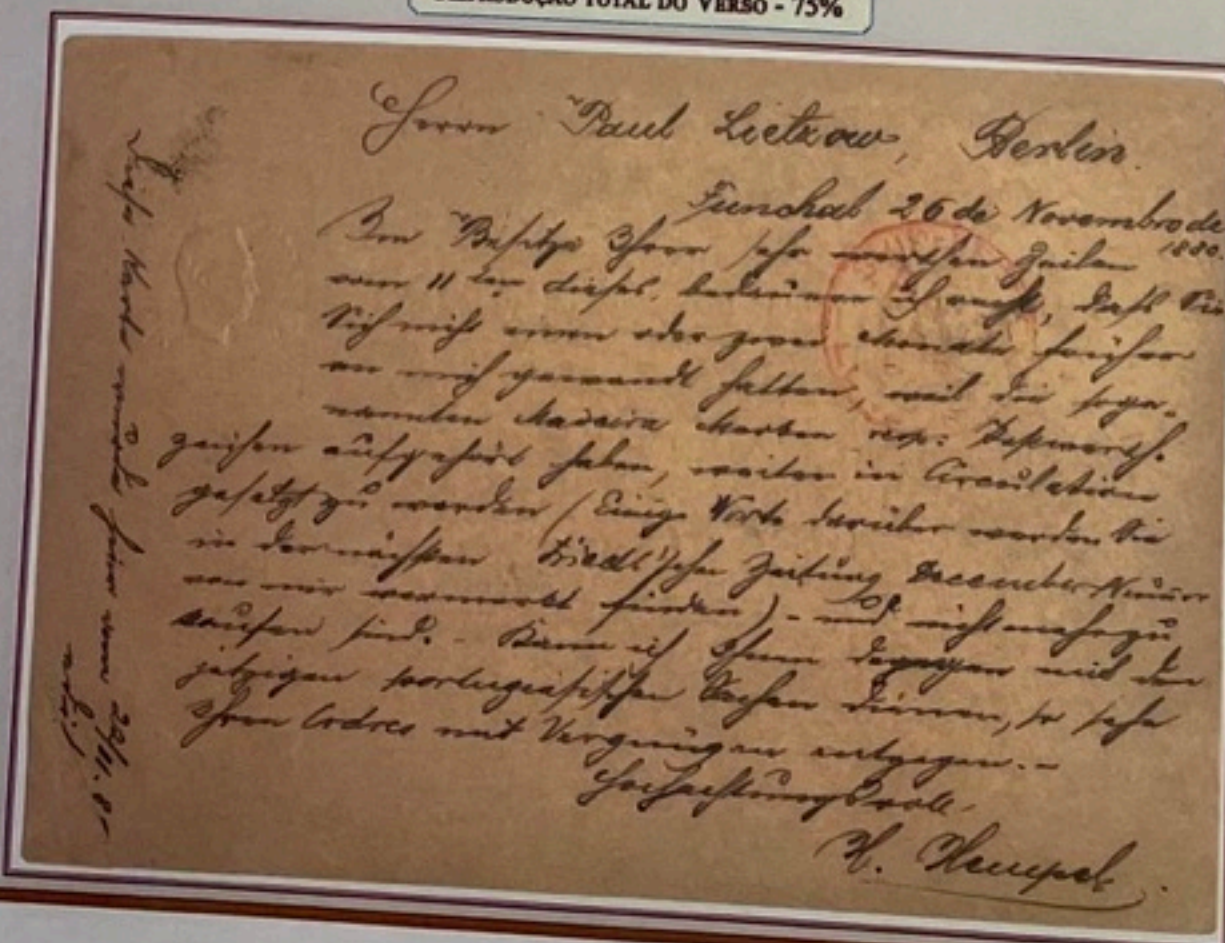 REPRODUÇÃO TOTAL DO VERSO - 75%
Herrn Paul Lietzow, Berlin.
Funchal 26 de Novembro de
1880.
Im Besitze Ihrer sehr werthen Zeilen
vom 11ten dieses, bedauere ich recht, daß Sie
Sich nicht einen oder zwei Monate früher
an mich gewandt hatten, weil die soge-
nannten Madeira Marken resp: Postwerth-
zeichen aufgehört haben, weiter in Circulation
gesetzt zu werden (Einige Worte darüber werden Sie
in der nächsten Friedl'schen Zeitung December Numer
von mir vermerkt finden) - und nicht mehr zu
kaufen sind. - Kann ich Ihnen dagegen mit den
jetzigen portugiesischen Sachen dienen, so sehe
Ihren Ordres mit Vergnügen entgegen. -
Hochachtungsvoll.
H. Hempel.
Diese Karte wurde